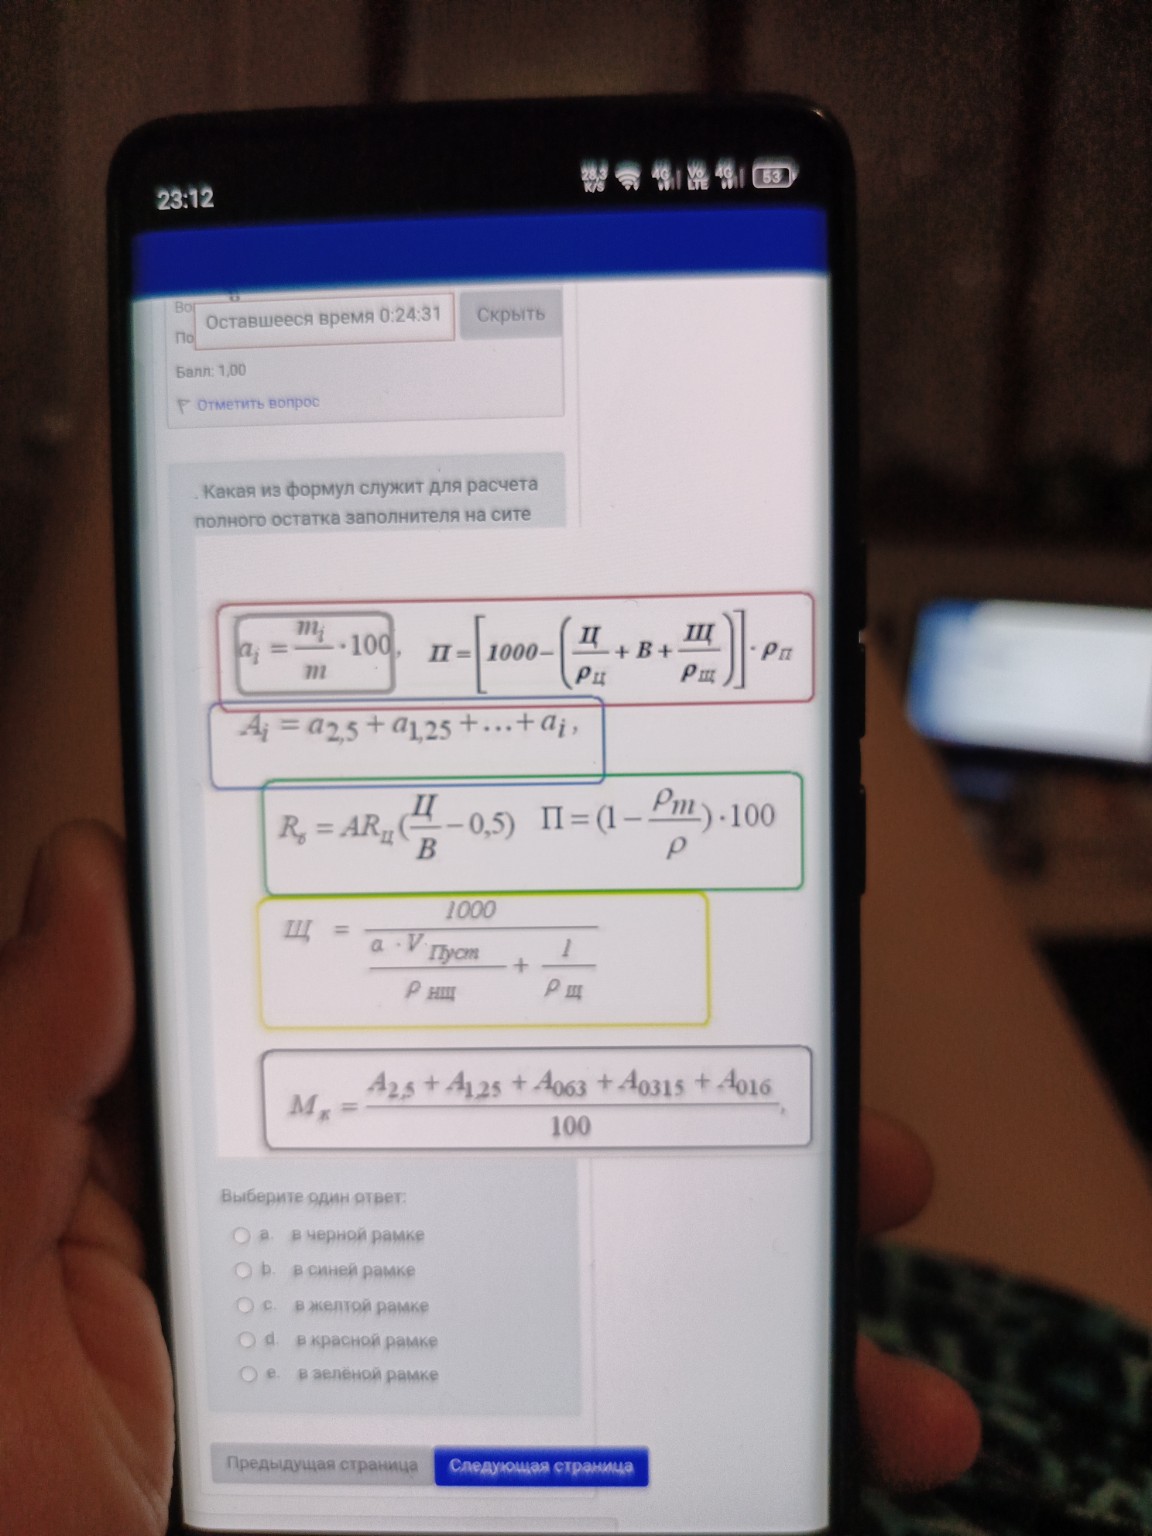 23:12
28,3 K/S 4G Vo LTE 4G 53
Оставшееся время 0:24:31
Скрыть
Балл: 1,00
Отметить вопрос
. Какая из формул служит для расчета
полного остатка заполнителя на сите
a_i = m_i / m · 100, П = [1000 – (Ц/ρ_Ц + В + Щ/ρ_Щ)] · ρ_П
A_i = a_2,5 + a_1,25 + ... + a_i,
R_б = AR_Ц (Ц/В – 0,5) П = (1 – ρ_m/ρ) · 100
Щ = 1000 / (a · V_Пуст / ρ_нщ + 1 / ρ_щ)
М_к = (A_2,5 + A_1,25 + A_063 + A_0315 + A_016) / 100,
Выберите один ответ:
a. в черной рамке
b. в синей рамке
c. в желтой рамке
d. в красной рамке
e. в зелёной рамке
Предыдущая страница
Следующая страница